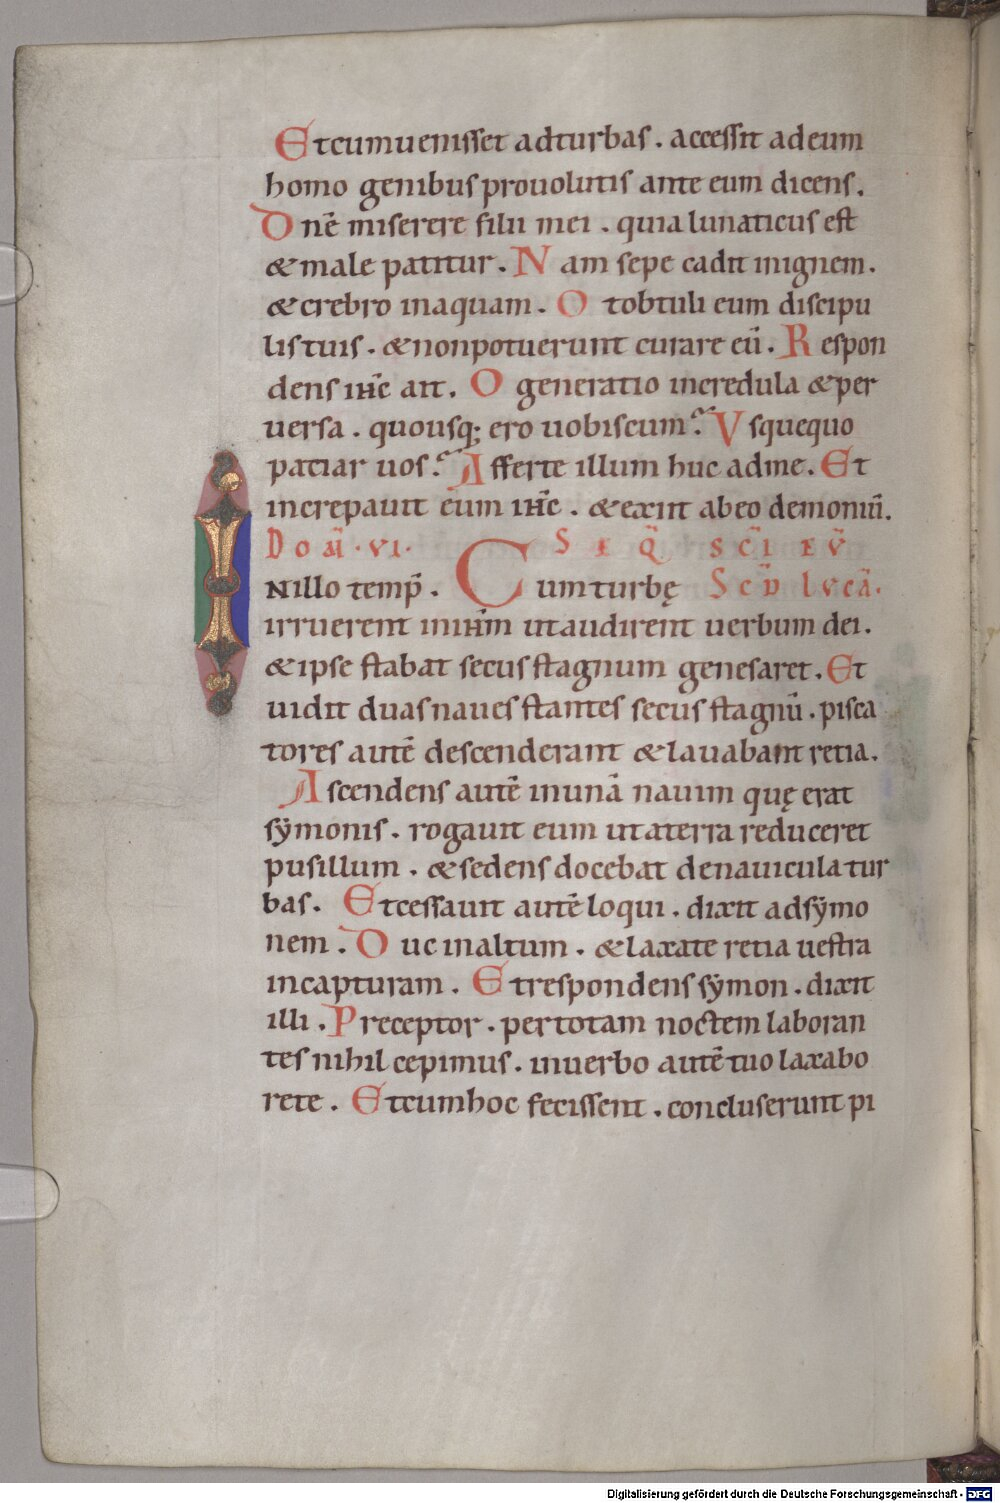 Et cum uenisset ad turbas . accessit ad eum
homo genibus prouolutis ante eum dicens .
Dnē miserere filii mei . quia lunaticus est
& male patitur . Nam sepe cadit in ignem .
& crebro in aquam . Et obtuli eum discipu
lis tuis . & non potuerunt curare eū . Respon
dens ihc̄ ait . O generatio incredula & per
uersa . quousq; ero uobiscum ? Vsquequo
patiar uos ? Afferte illum huc ad me . Et
increpauit eum ihc̄ . & exiit ab eo demoniū .
Dom̄ . VI . SEQ̄ SC̄I EV̄
INillo temp̄ . Cum turbę Scd̄ Lvcā .
irruerent in ihm̄ ut audirent uerbum dei .
& ipse stabat secus stagnum genesaret . Et
uidit duas naues stantes secus stagnū . pisca
tores autē descenderant & lauabant retia .
Ascendens autē in unā nauim quę erat
sẏmonis . rogauit eum ut a terra reduceret
pusillum . & sedens docebat de nauicula tur
bas . Et cessauit autē loqui . dixit ad sẏmo
nem . Duc in altum . & laxate retia uestra
in capturam . Et respondens sẏmon . dixit
illi . Preceptor . per totam noctem laboran
tes nihil cepimus . in uerbo autē tuo laxabo
rete . Et cum hoc fecissent . concluserunt pi
Digitalisierung gefördert durch die Deutsche Forschungsgemeinschaft - DFG